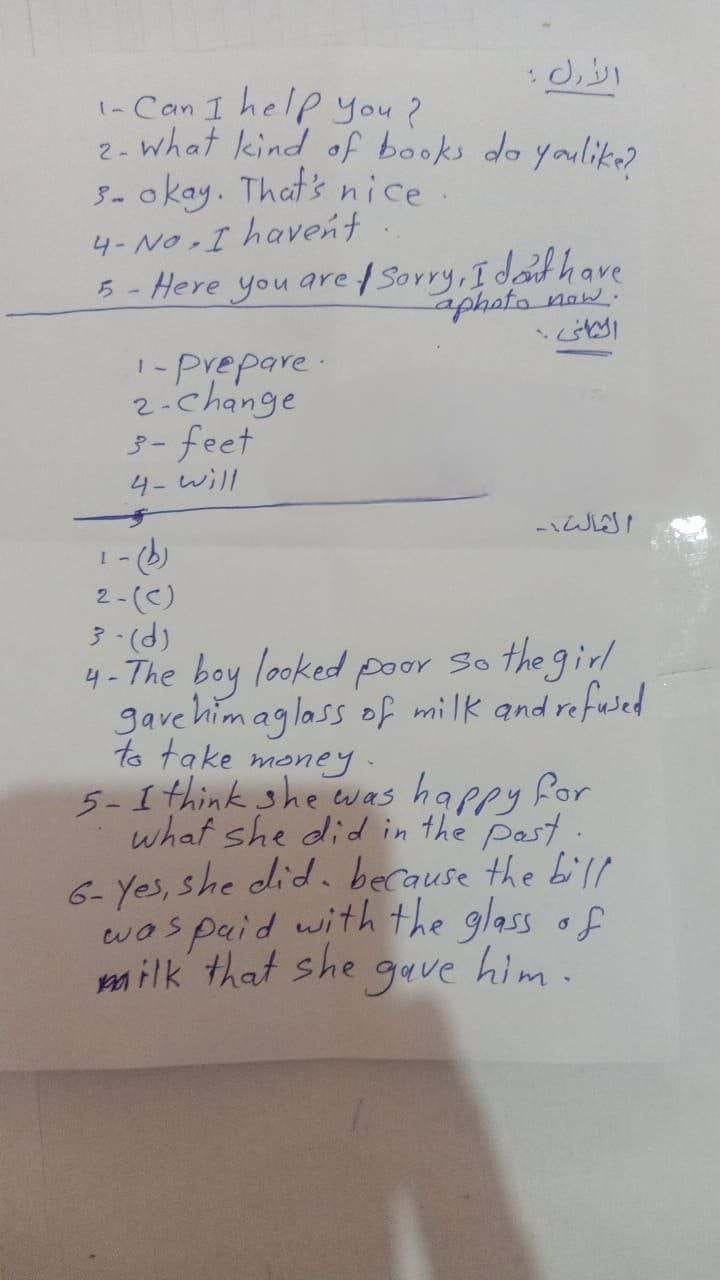 الأول :
1- Can I help you?
2- What kind of books do you like?
3- okay. That's nice.
4- No, I haven't.
5- Here you are / Sorry, I don't have
a photo now.
الثانى :
1- prepare.
2- Change
3- feet
4- will
الثالث :-
1- (b)
2- (c)
3- (d)
4- The boy looked poor so the girl
gave him a glass of milk and refused
to take money.
5- I think she was happy for
what she did in the past.
6- Yes, she did. because the bill
was paid with the glass of
milk that she gave him.